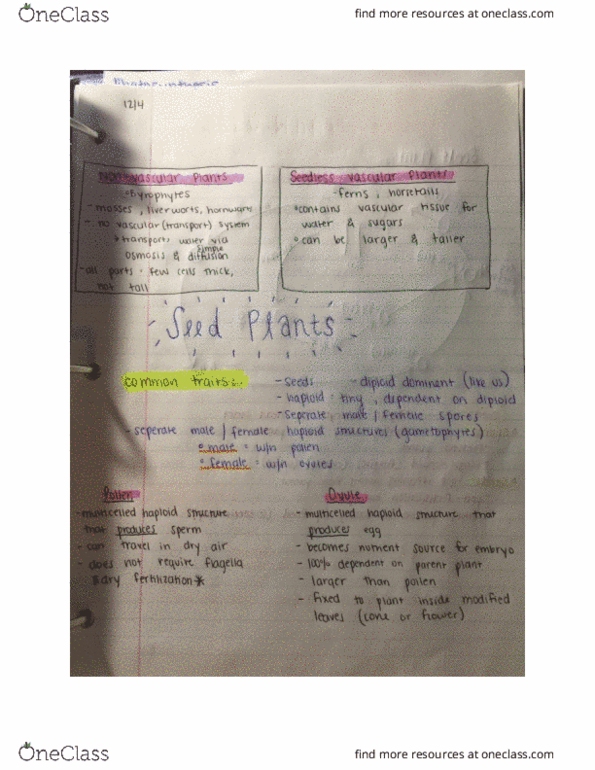 OneClass
find more resources at oneclass.com
12/4
Non-vascular Plants
•byrophytes
- mosses, liverworts, hornworts
- no vascular (transport) system
* transports water via
osmosis & simple diffusion
- all parts - few cells thick,
not tall
Seedless Vascular Plants
- ferns, horsetails
•contains vascular tissue for
water & sugars
•can be larger & taller
Seed Plants
common traits:
- seeds
- diploid dominant (like us)
- haploid - tiny, dependent on diploid
- seperate male/female spores
- seperate male/female haploid structures (gametophytes)
• male = w/n pollen
• female = w/n ovules
Pollen
- multicelled haploid structure
that produces sperm
- can travel in dry air
- does not require flagella
& dry fertilization *
Ovule
- multicelled haploid structure that
produces egg
- becomes nutrient source for embryo
- 100% dependent on parent plant
- larger than pollen
- fixed to plant inside modified
leaves (cone or flower)
OneClass
find more resources at oneclass.com